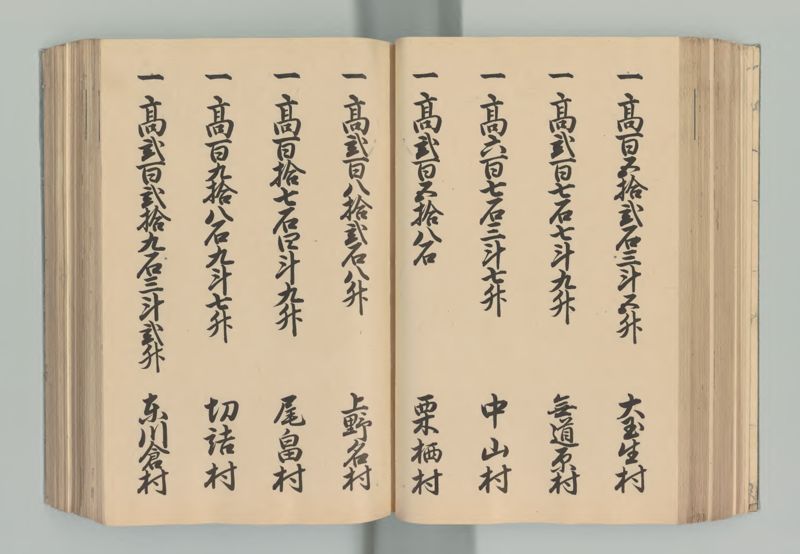 一 高百五拾弐石三斗五升 大玉生村
一 高弐百七石七斗九升 無道原村
一 高六百七石三斗七升 中山村
一 高弐百五拾八石 栗栖村
一 高弐百八拾弐石八升 上野名村
一 高百拾七石四斗九升 尾畠村
一 高百九拾八石九斗七升 切詰村
一 高弐百弐拾九石三斗弐升 东川倉村